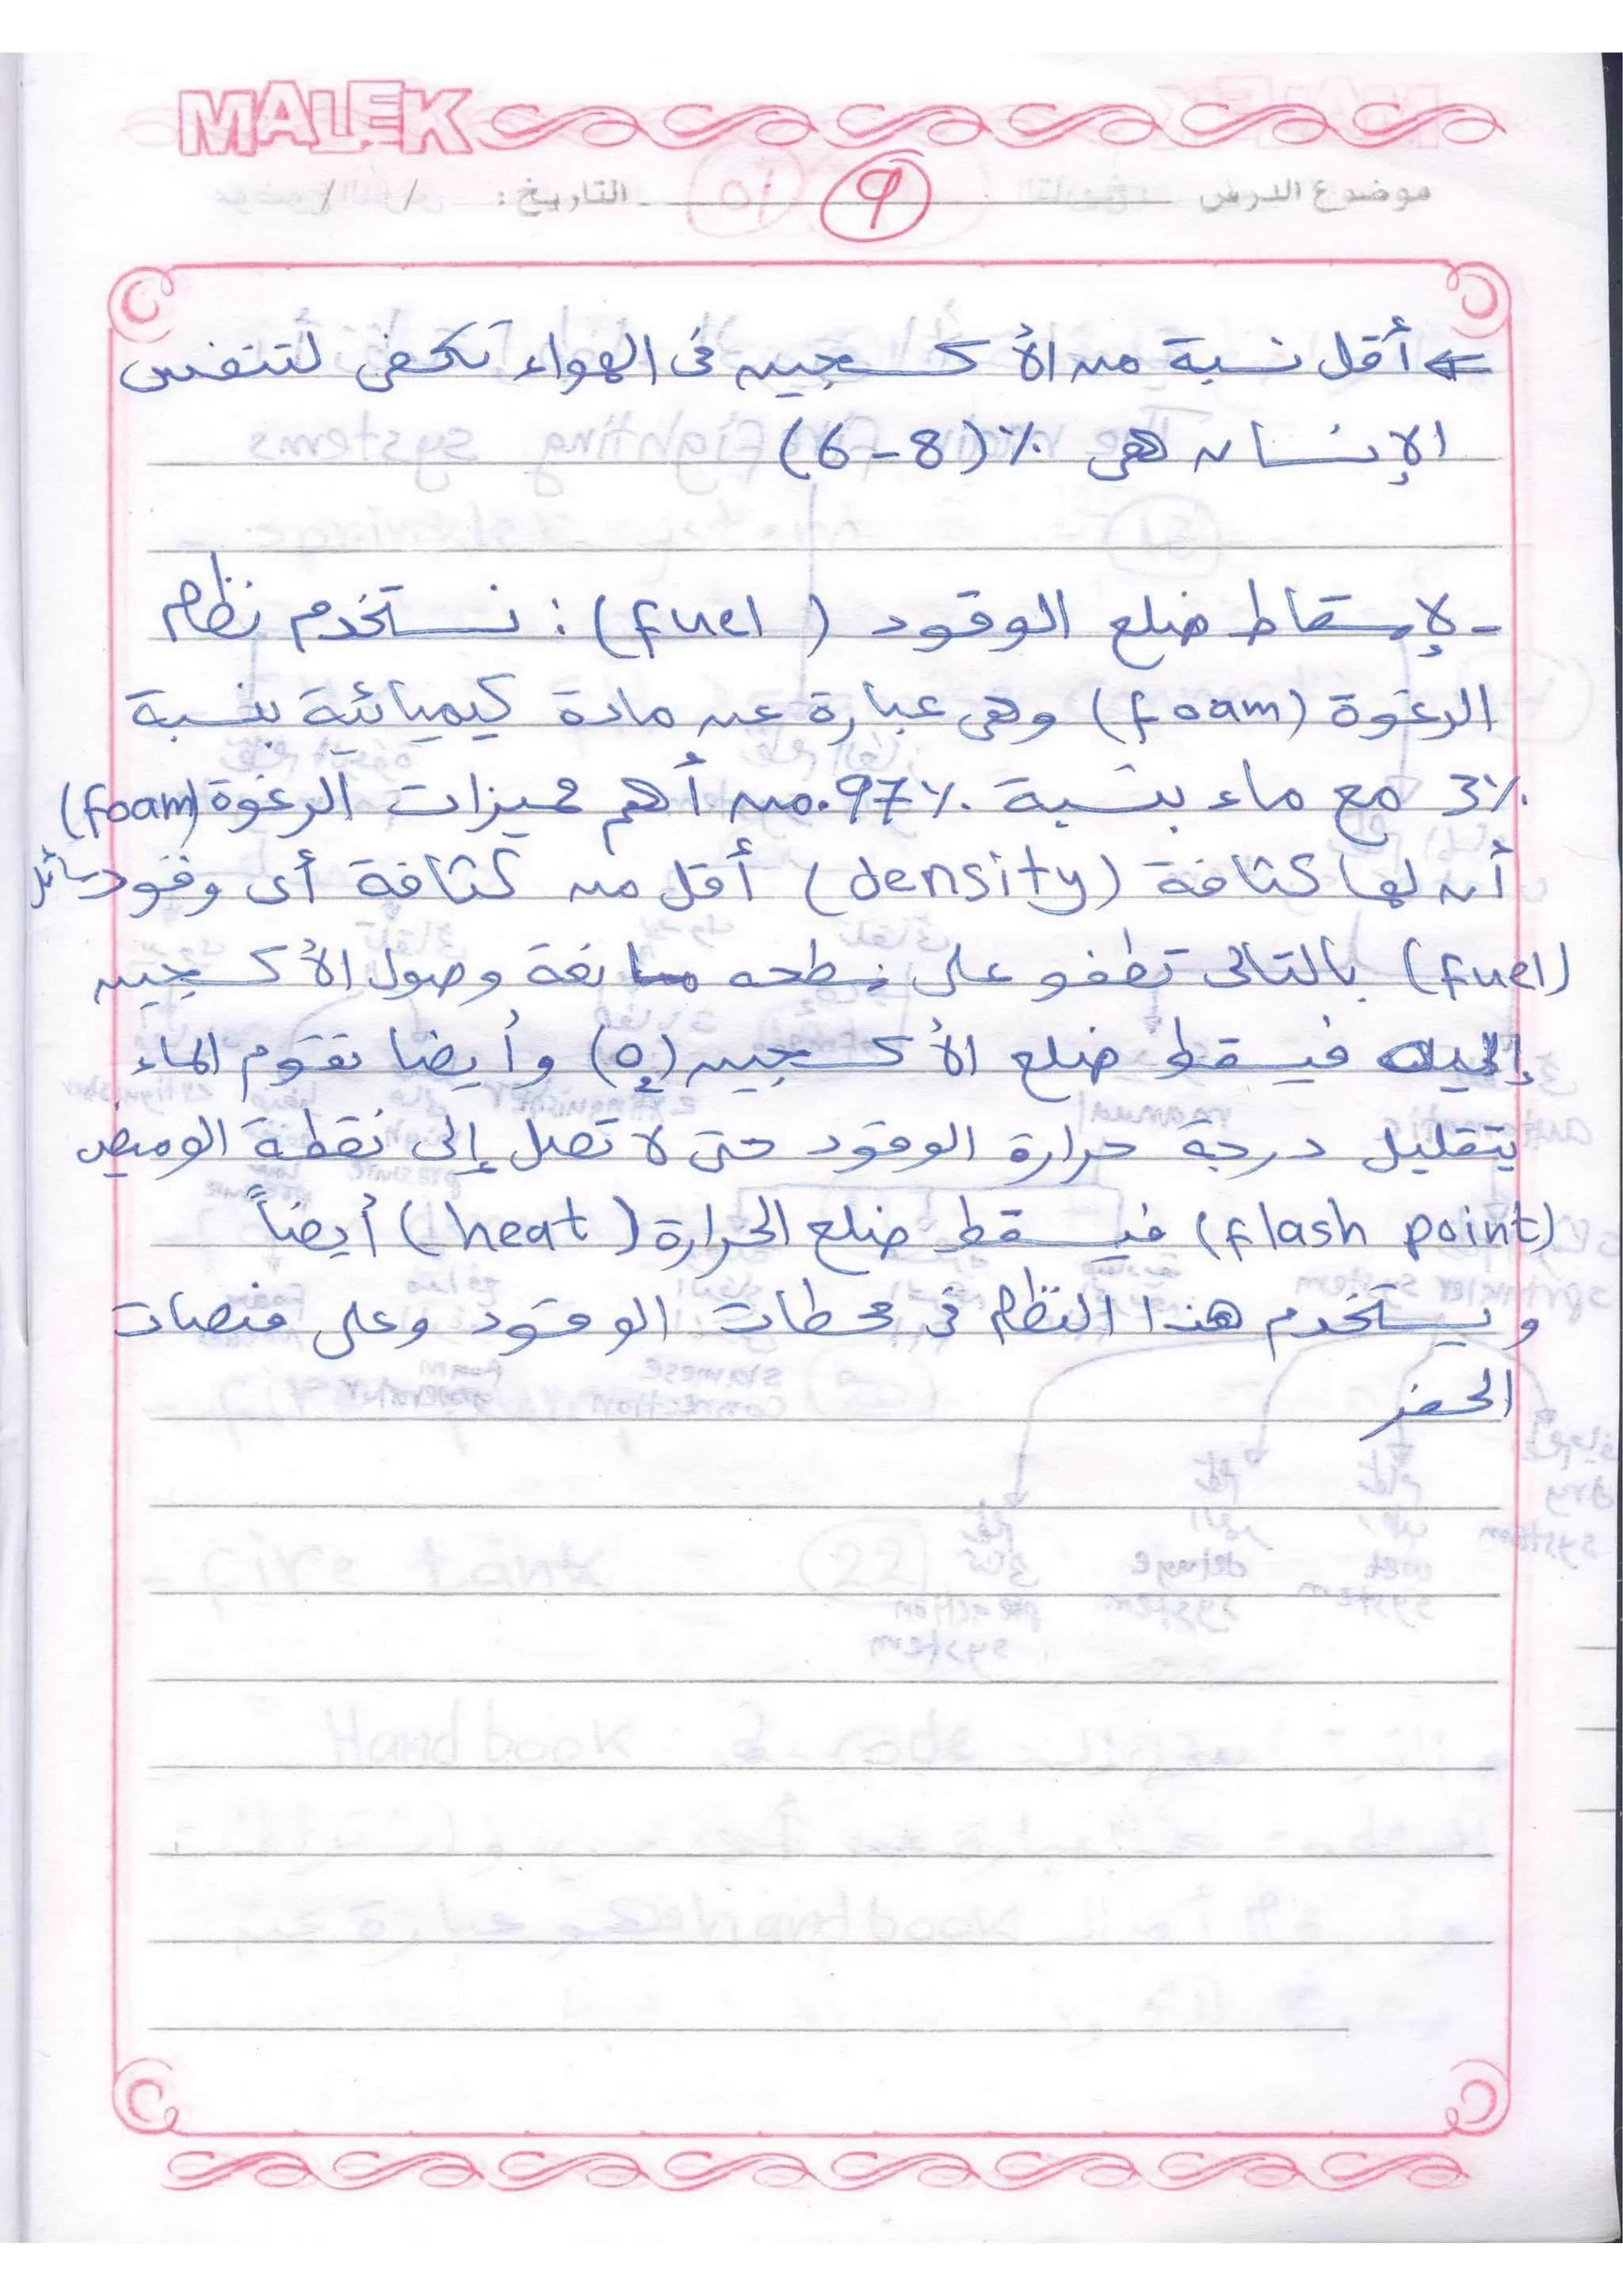 MALEK
موضوع الدرس
9
التاريخ: / /
⇐ أقل نسبة من الأكسجين فى الهواء تكفى لتنفس
الإنسان هى %(8-6)
- لإسقاط ضلع الوقود (fuel): نستخدم نظام
الرغوة (foam) وهى عبارة عن مادة كيميائية بنسبة
3% مع ماء بنسبة 97%. من أهم مميزات الرغوة (foam)
أن لها كثافة (density) أقل من كثافة أى وقود سائل
(fuel) بالتالى تطفو على سطحه مانعة وصول الأكسجين
إليه فيسقط ضلع الأكسجين (o₂) وأيضا تقوم الماء
بتقليل درجة حرارة الوقود حتى لا تصل إلى نقطة الوميض
(flash point) فيسقط ضلع الحرارة (heat) أيضاً
ويستخدم هذا النظام فى محطات الوقود وعلى منصات
الحفر